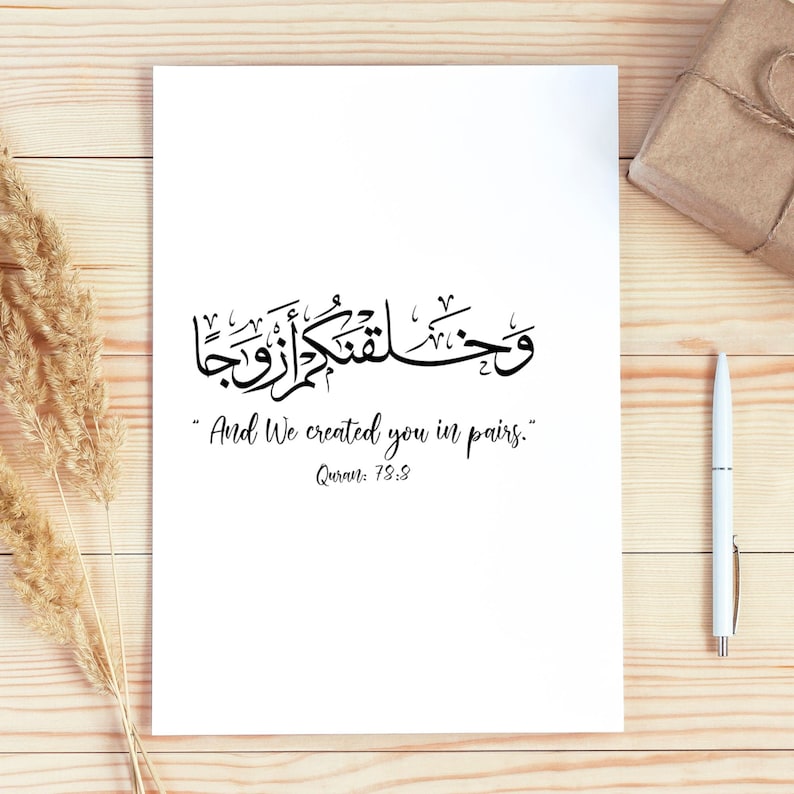 وَخَلَقنَكُم أَزوَجًا
" And We created you in pairs."
Quran: 78:8